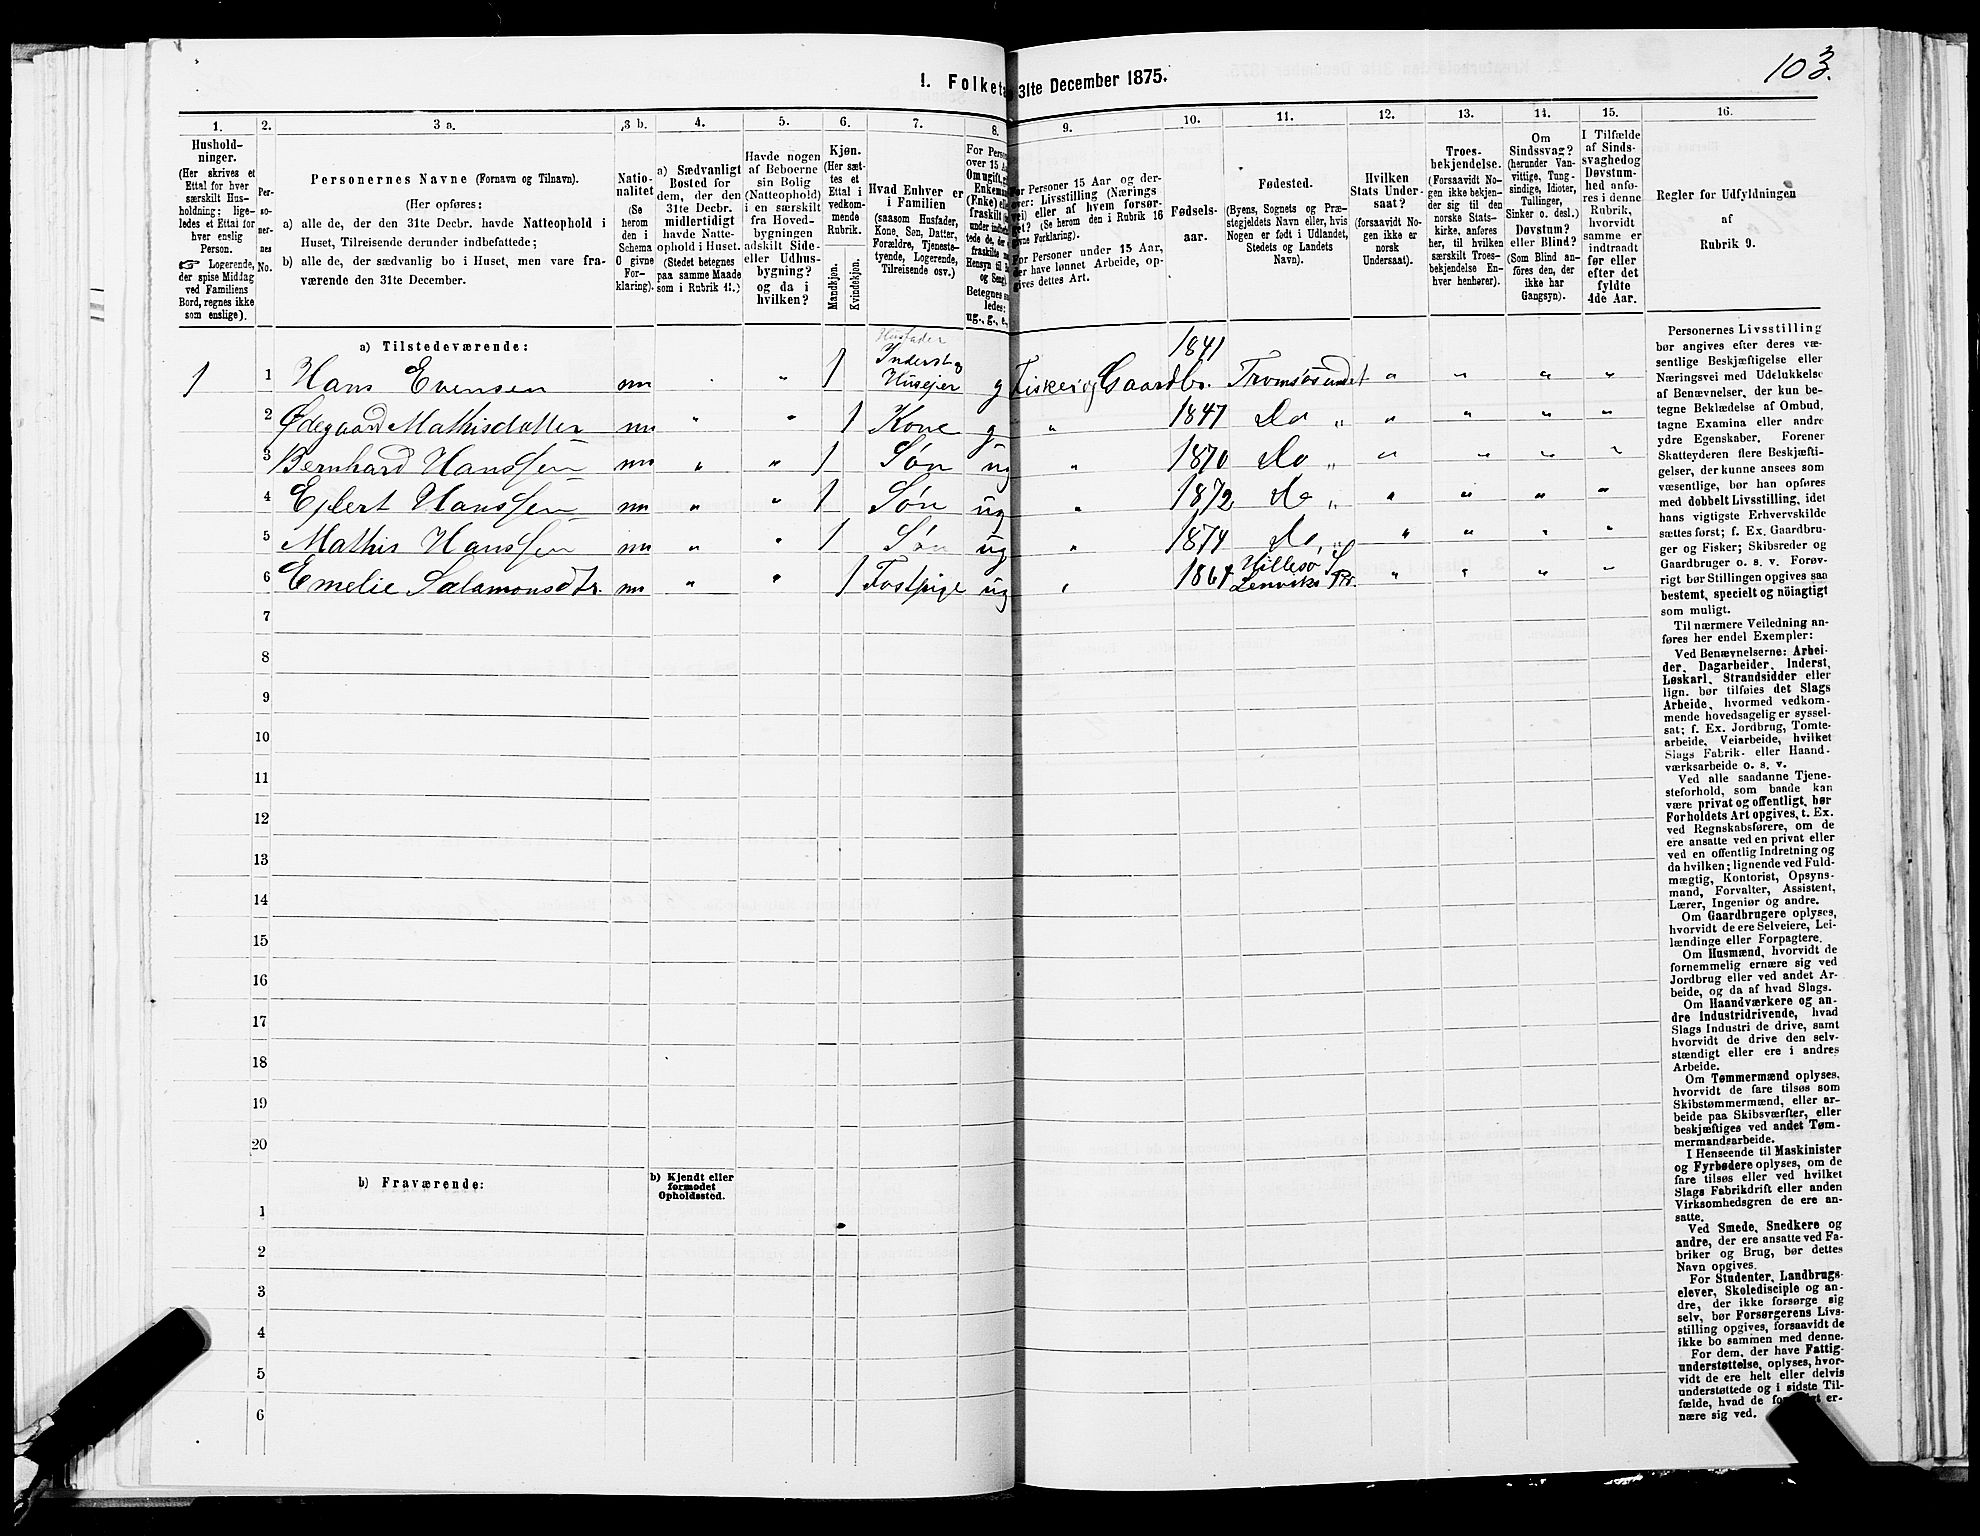 103.
1. Folketa 31te December 1875.
1. 2. 3 a. 3 b. 4. 5. 6. 7. 8. 9. 10. 11. 12. 13. 14. 15. 16.
Hushold-
ninger.
(Her skrives et
Ettal for hver
særskilt Hus-
holdning; lige-
ledes et Ettal for
hver enslig
Person.
☞ Logerende,
der spise Middag
ved Familiens
Bord, regnes ikke
som enslige).
Per-
so-
ner-
nes
No.
Personernes Navne (Fornavn og Tilnavn).
(Her opføres:
a) alle de, der den 31te Decbr. havde Natteophold i
Huset, Tilreisende derunder indbefattede;
b) alle de, der sædvanlig bo i Huset, men vare fra-
værende den 31te December.
Natio-
nalitet
(Se
herom
den i
Schema
O givne
For-
klaring).
a) Sædvanligt
Bosted for
dem, der den
31te Decbr.
midlertidigt
havde Natte-
ophold i Huset.
(Stedet betegnes
paa samme Maade
som i Rubrik 11.)
Havde nogen
af Beboerne
sin Bolig
(Natteophold)
i en særskilt
fra Hoved-
bygningen
adskilt Side-
eller Udhus-
bygning?
og da i
hvilken?
Kjøn.
(Her sæt-
tes et
Ettal i
vedkom-
mende
Rubrik.
Mandkjøn.
Kvindekjøn.
Hvad Enhver er
i Familien
(saasom Husfader,
Kone, Søn, Datter,
Forældre, Tjeneste-
tyende, Logerende,
Tilreisende osv.)
For Person
over 15 A
Om ugift, g
Enkemand
(Enke) ell
fraskilt
under indbefa
tede de, der
fraskilte
Hensyn til
og Seng)
Betegnes s
ledes:
ug., g., e.,
For Personer 15 Aar og der-
over: Livsstilling (Nærings-
vei) eller af hvem forsør-
get? (Se herom den i Rubrik 16
givne Forklaring).
For Personer under 15 Aar,
der have lønnet Arbeide, op-
gives dettes Art.
Fødsels-
aar.
Fødested.
(Byens, Sognets og Præ-
stegjeldets Navn eller, hvis
Nogen er født i Udlandet,
Stedets og Landets
Navn).
Hvilken
Stats Under-
saat?
(forsaavidt No-
gen ikke er
norsk
Undersaat).
Troes-
bekjendelse.
(Forsaavidt No-
gen ikke bekjen-
der sig til den
norske Stats-
kirke, anføres
her, til hvilken
særskilt Troes-
bekjendelse En-
hver henhører).
Om
Sindssvag?
(herunder Van-
vittige, Tung-
sindige, Idioter,
Tullinger,
Sinker o. desl.)
Døvstum?
eller Blind?
(Som Blind an-
føres den, der
ikke har
Gangsyn).
I Tilfælde
af Sinds-
svaghedog
Døvstum-
hed anfø-
res i denne
Rubrik,
hvorvidt
samme er
indtraadt
før eller
efter det
fyldte
4de Aar.
Regler for Udfyldningen
af
Rubrik 9.
a) Tilstedeværende:
Husfader
Inderst og
1 1 Hans Evensen nn " 1 Husejer g Fisker og Gaardbr. 1841 Tromsøsundet " " " "
2 Ødegaard Mathisdatter nn " " 1 Kone g " 1847 Do " " " " "
3 Bernhard Hanssen nn " " 1 Søn ug " 1870 Do " " " " "
4 Ejlert Hanssen nn " " 1 Søn ug " 1872 Do " " " " "
5 Mathis Hanssen nn " " 1 Søn ug " 1874 Do " " " " "
6 Emelie Salamonsdtr. nn " " 1 Fostpige ug " 1864 Hillesø S Lenviks Pr. " " " "
7
8
9
10
11
12
13
14
15
16
17
18
19
20
b) Fraværende:
b) Kjendt eller
formodet
Opholdssted.
1
2
3
4
5
6
Personernes Livsstilling
bør angives efter deres væ-
sentlige Beskjæftigelse eller
Næringsvei med Udelukkelse
af Benævnelser, der kun be-
tegne Beklædelse af Ombud,
tagne Examina eller andre
ydre Egenskaber. Forener
Skatteyderen flere Beskjæfti-
gelser, der kunne ansees som
væsentlige, bør han opføres
med dobbelt Livsstilling, idet
hans vigtigste Erhvervskilde
sættes først; f. Ex. Gaardbru-
ger og Fisker; Skibsreder og
Gaardbruger o. s. v. Forøv-
rigt bør Stillingen opgives saa
bestemt, specielt og nöiagtigt
som muligt.
Til nærmere Veiledning an-
føres her endel Exempler:
Ved Benævnelserne: Arbei-
der, Dagarbeider, Inderst,
Løskarl, Strandsidder eller
lign. bør tilføies det Slags
Arbeide, hvormed vedkom-
mende hovedsagelig er syssel-
sat; f. Ex. Jordbrug, Tomte-
arbeide, Veiarbeide, hvilket
Slags Fabrik- eller Haand-
værksarbeide o. s. v.
Ved alle saadanne Tjene-
steforhold, som baade kan
være privat og offentligt, bør
Forholdets Art opgives, t. Ex.
ved Regnskabsførere, om de
ere ansatte ved en privat eller
ved en offentlig Indretning og
da hvilken; lignende ved Fuld-
mægtig, Kontorist, Opsyns-
mand, Forvalter, Assistent,
Lærer, Ingeniør og andre.
Om Gaardbrugere oplyses,
hvorvidt de ere Selveiere, Lei-
lændinge eller Forpagtere.
Om Husmænd, hvorvidt de
fornemmelig ernære sig ved
Jordbrug eller ved andet Ar-
beide, og da af hvad Slags.
Om Haandværkere og an-
dre Industridrivende, hvad
Slags Industri de drive, samt
hvorvidt de drive den selv-
stændigt eller ere i andres
Arbeide.
Om Tømmermænd oplyses,
hvorvidt de fare tilsøs som
Skibstømmermænd, eller ar-
beide paa Skibsværfter, eller
beskjæftiges ved andet Tøm-
mermandsarbeide.
I Henseende til Maskinister
og Fyrbødere oplyses, om de
fare tilsøs eller ved hvilket
Slags Fabrikdrift eller anden
Virksomhedsgren de ere an-
satte.
Ved Smede, Snedkere og
andre, der ere ansatte ved Fa-
briker og Brug, bør dettes
Navn opgives.
For Studenter, Landbrugs-
elever, Skoledisciple og an-
dre, der ikke forsørge sig
selv, bør Forsørgerens Livs-
stilling opgives, forsaavidt de
ikke bo sammen med denne.
For dem, der have Fattig-
understøttelse, oplyses, hvor-
vidt de ere helt eller delvis
understøttede og i sidste Til-
fælde, hvad de for er-
nære sig ved.